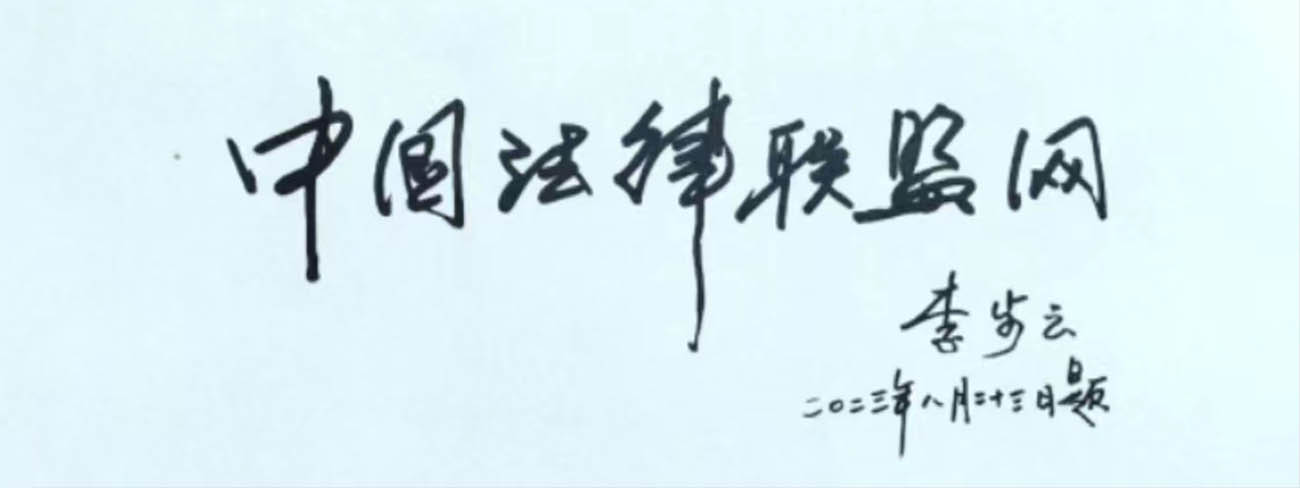 中国法律联盟网
李步云
二〇二三年八月二十三日题